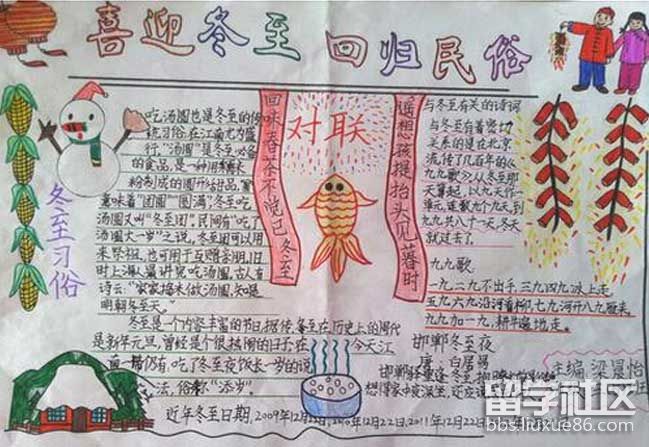 喜迎冬至 回归民俗
冬至习俗
吃汤圆也是冬至的传
统习俗,在江南尤为盛
行"汤圆"是冬至必备
的食品,是一种用糯米
粉制成的圆形甜品,"圆"
意味着"团圆""圆满",冬至吃
汤圆又叫"冬至团"。民间有"吃了
汤圆大一岁"之说。冬至团可以用
来祭祖,也可用于互赠亲朋,旧
时上海人最讲究吃汤团,古人有
诗云:"家家捣米做汤圆,知是
明朝冬至天。"
冬至是一个内容丰富的节日,据传,冬至在历史上的周代
是新年元旦,曾经是个很热闹的日子,在今天江
南一带仍有吃了冬至夜饭长一岁的说
法,俗称"添岁"。
近年冬至日期,2009年12月22日,2010年12月22日,2011年12月22日
回味春茶不觉已冬至
对联
遥想孩提抬头见暮时
与冬至有关的诗词
与冬至有着密切
关系的是在北京
流传了几百年的《
九九歌》从冬至那
天算起,以九天作一
单元,连数九个九天,到
九九共八十一天,冬天
就过去了。
九九歌
一九二九不出手,三九四九冰上走,
五九六九沿河看柳,七九河开八九雁来,
九九加一九,耕牛遍地走。
邯郸冬至夜
唐 白居易
邯郸驿里逢冬至,抱膝灯前影伴身
想得家中夜深坐,还应说
主编:梁晨怡
留学社区
bbs.liuxue86.com